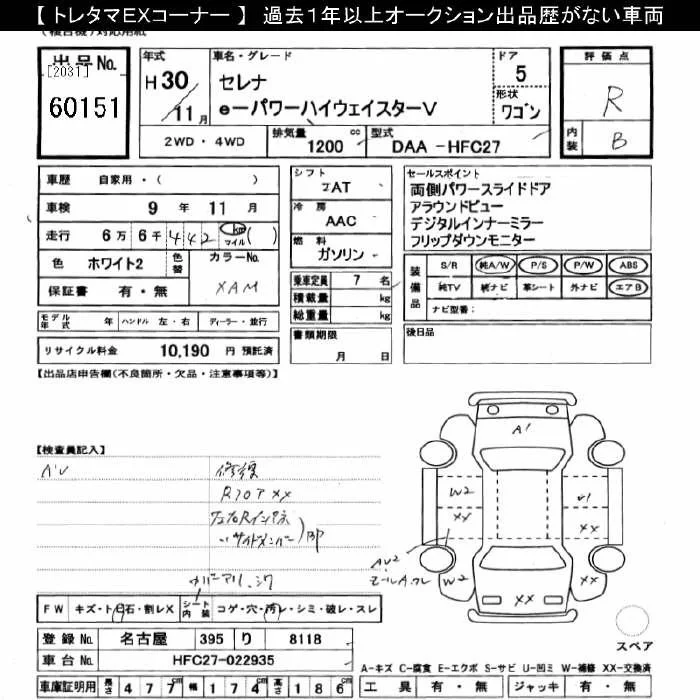 【 トレタマEXコーナー 】 過去1年以上オークション出品歴がない車両
(複合機)対応用紙
出品No.
[2031]
60151
年式
H 30
11 月
車名・グレード
セレナ
e-パワーハイウェイスターV
ドア
5
形状
ワゴン
2WD ・ 4WD
排気量
1200 cc
型式
DAA -HFC27
評価点
R
内装
B
車歴 自家用・( )
車検 9 年 11 月
走行 6万 6千 4 4 2 km マイル ( )
色 ホワイト2
色替
カラーNo.
XAM
保証書 有・無
シフト
IAT
冷房
AAC
燃料
ガソリン
乗車定員 7 名
積載量 kg
総重量 kg
書類期限
月 日
セールスポイント
両側パワースライドドア
アラウンドビュー
デジタルインナーミラー
フリップダウンモニター
装備品
S/R 純A/W P/S P/W ABS
純TV 純ナビ 革シート 外ナビ エアB
ナビ型番:
後日品
モデル年式 年 ハンドル 左・右 ディーラー・並行
リサイクル料金 10,190 円 預託済
【出品店申告欄(不良箇所・欠品・注意事項等)】
【検査員記入】
修復
RフロアXX
左右Rインパネ
サイドメンバー)BP
A1
W2
XX
U1
XX
AU2
W2
XX
XX
FW キズ・ト石・割レX
シート内装 コゲ・穴・汚レ・シミ・破レ・スレ
登録No. 名古屋 395 り 8118
車台No. HFC27-022935
スペア
A-キズ C-腐食 E-エクボ S-サビ U-凹ミ W-補修 XX-交換済
車庫証明用 長さ 477cm 幅 174cm 高さ 186cm
工具 有・無 ジャッキ 有・無